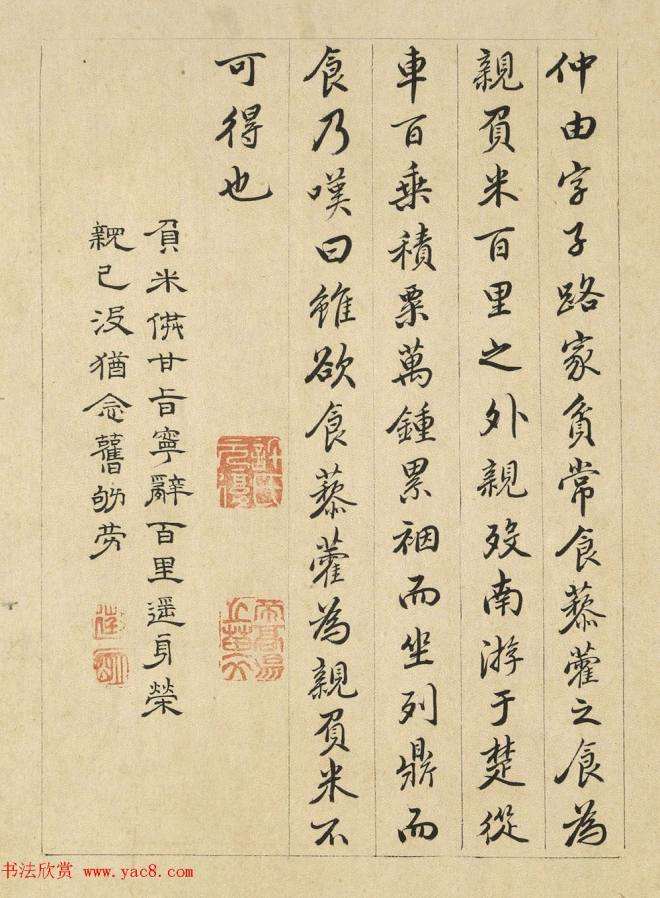 仲由字子路家貧常食藜藿之食為
親負米百里之外親歿南游于楚從
車百乘積粟萬鍾累裀而坐列鼎而
食乃嘆曰雖欲食藜藿為親負米不
可得也
負米供甘旨寧辭百里遥身榮
親已沒猶念舊劬勞
书法欣赏 www.yac8.com